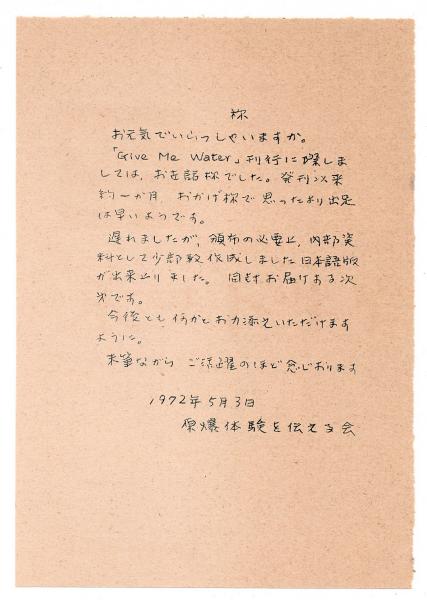 様
お元気でいらっしゃいますか。
「Give Me Water」刊行に際しま
しては、お世話様でした。発刊以来
約一か月、おかげ様で思ったより出足
は早いようです。
遅れましたが、頒布の必要上、内部資
料として少部数作成しました日本語版
が出来上りました。同封お届けする次
第です。
今後とも何かとお力添えいただけます
ように。
末筆ながら ご活躍のほど念じおります
1972年5月3日
原爆体験を伝える会